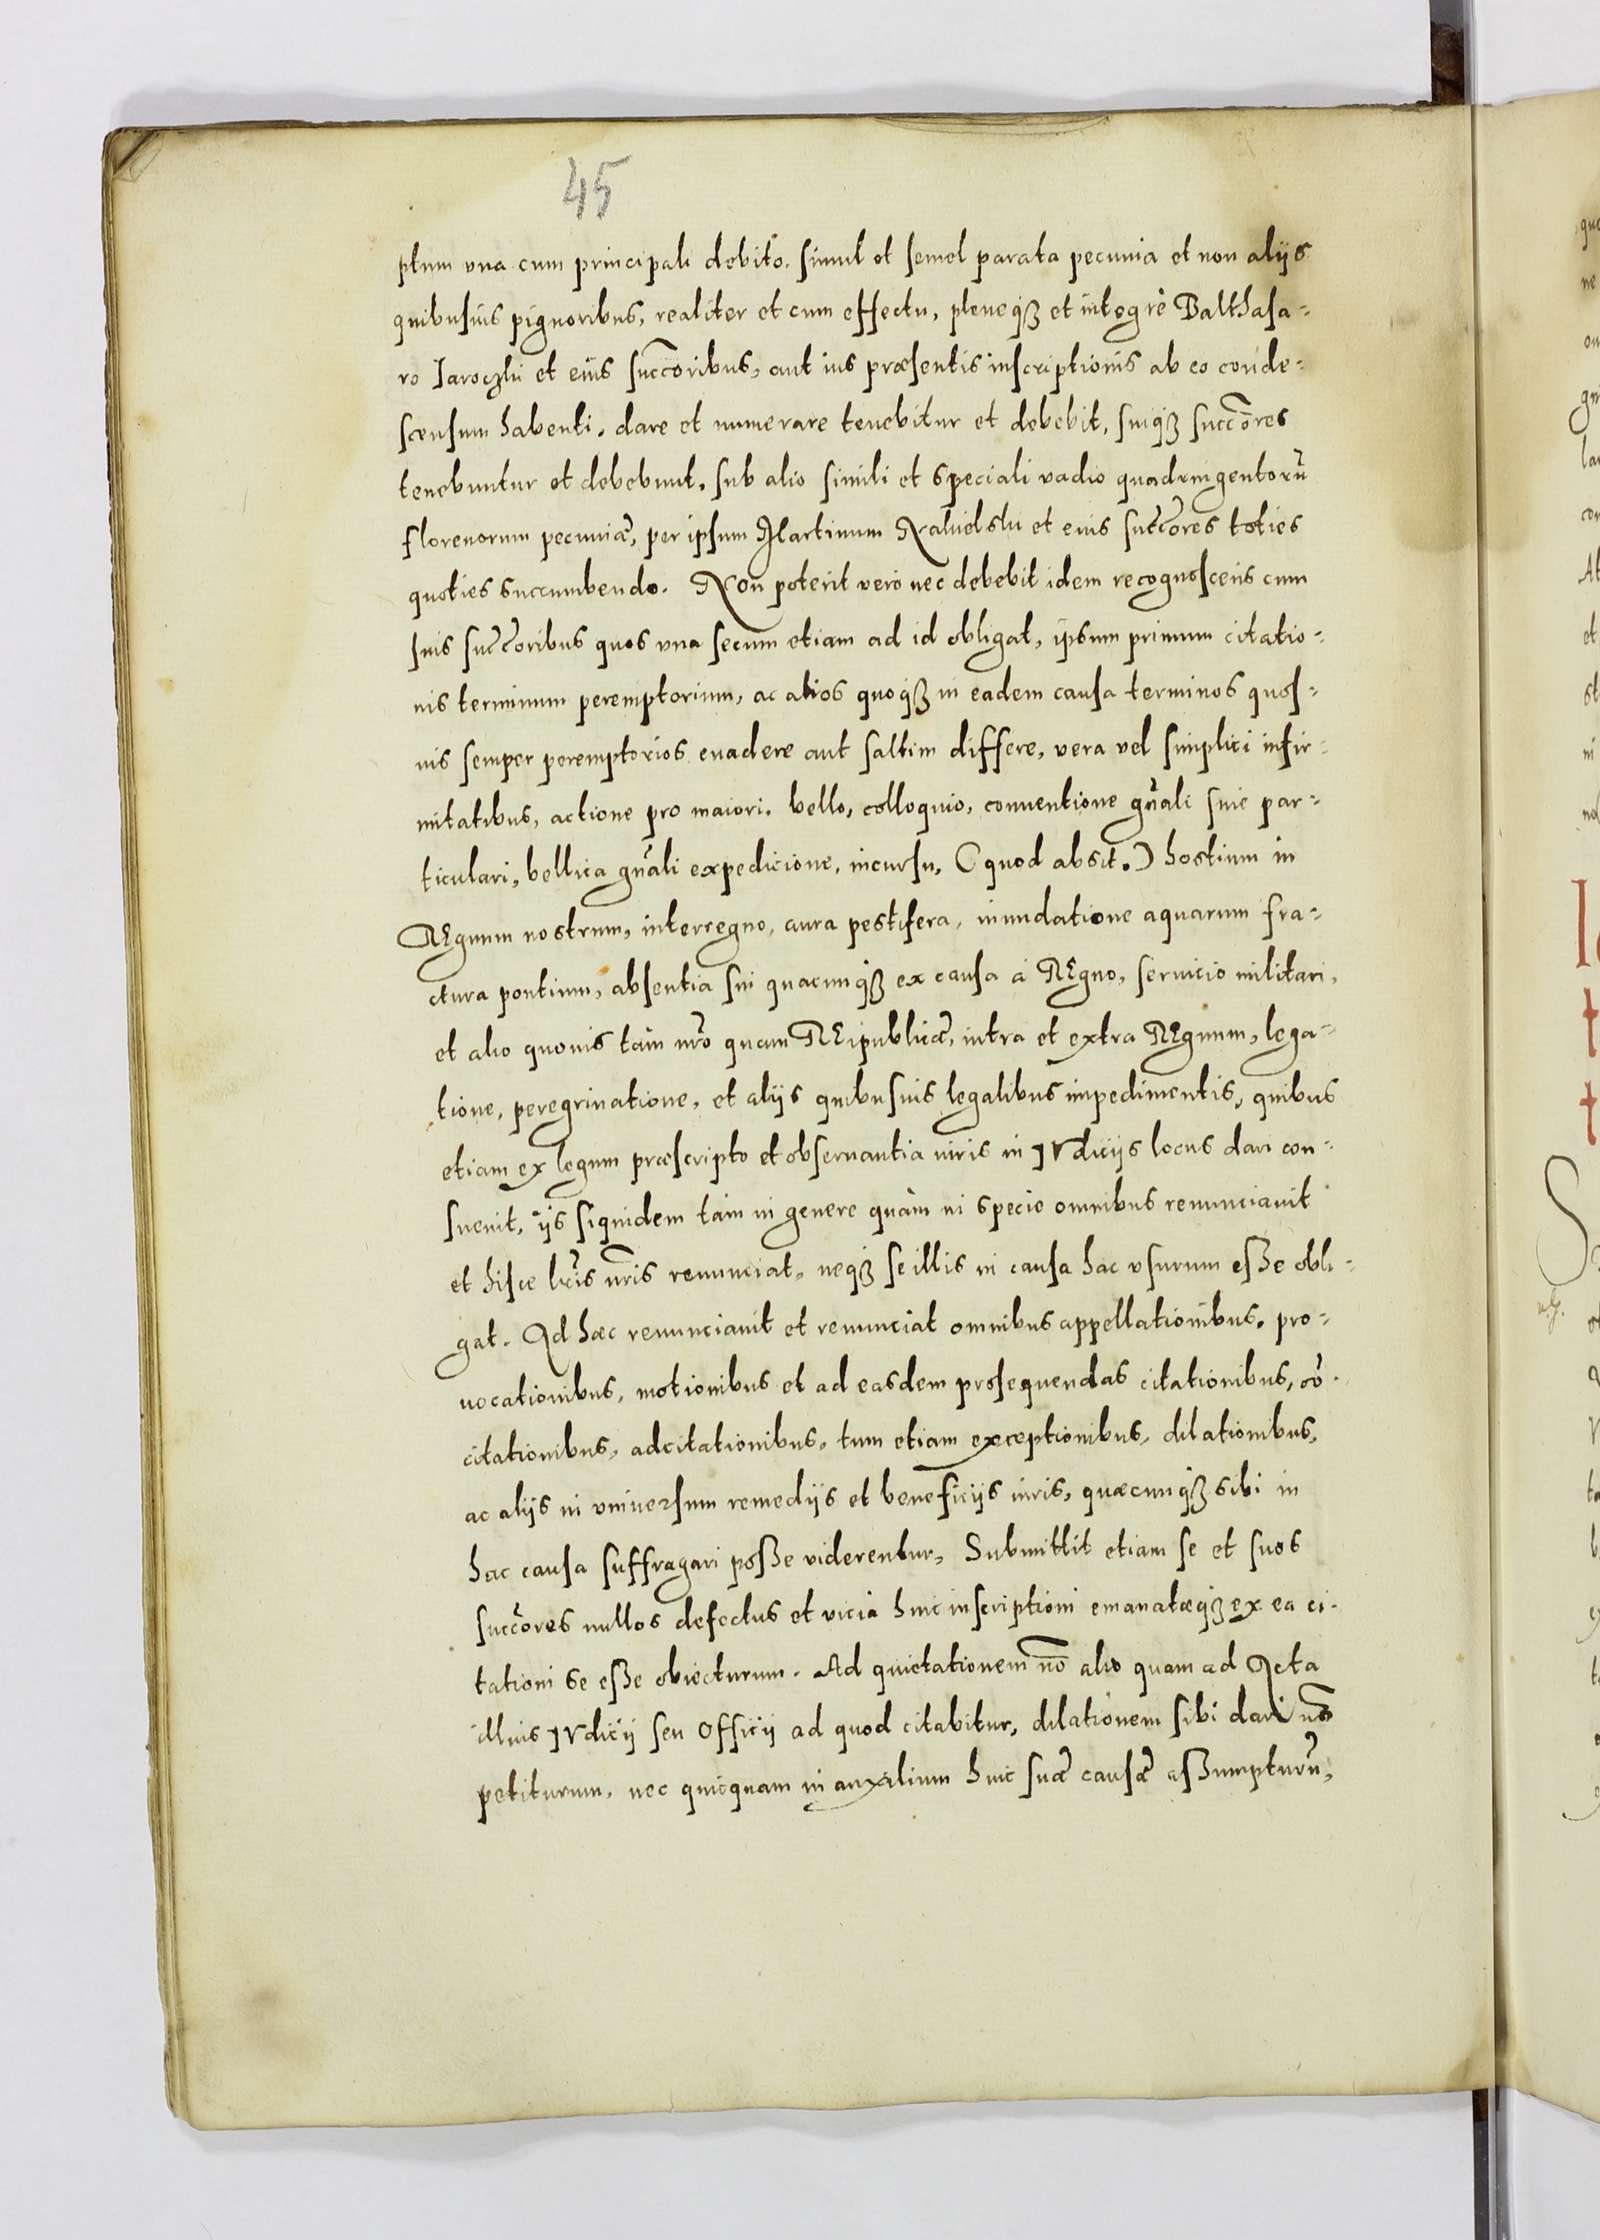 45
ptum vna cum principali debito. simul et semel parata pecunia et non alijs
quibusuis pignoribus, realiter et cum effectu, pleneq3 et integrè Balthasa-
ro Iaroczki et eius succ̄oribus, aut ius præsentis inscriptionis ab eo conde-
scensum habenti. dare et numerare tenebitur et debebit, suiq3 succ̄ores
tenebuntur et debebunt. sub alio simili et speciali vadio quadringentorū
florenorum pecuniæ, per ipsum Martinum et eius succ̄ores toties
quoties succumbendo. Non poterit vero nec debebit idem recognoscens cum
suis succ̄oribus quos vna secum etiam ad id obligat, ipsum primum citatio-
nis terminum peremptorium, ac alios quoq3 in eadem causa terminos quos-
uis semper peremptorios euadere aut saltim differe, vera vel simplici infir-
mitatibus, actione pro maiori. bello, colloquio, conuentione gn̄ali siue par-
ticulari, bellica gn̄ali expedicione, incursu, (quod absit.) hostium in
REgnum nostrum, interregno, aura pestifera, inundatione aquarum fra-
ctura pontium, absentia sui quacunq3 ex causa à REgno, seruicio militari,
et alio quouis tàm nr̄o quam REipublicæ, intra et extra REgnum, lega-
tione, peregrinatione, et alijs quibusuis legalibus impedimentis, quibus
etiam ex legum præscripto et obseruantia iuris in IVdicijs locus dari con-
sueuit, ijs siquidem tàm in genere quàm in specie omnibus renunciauit
et hisce lr̄is nr̄is renunciat, neq3 se illis in causa hac vsurum eße obli-
gat. Ad hæc renunciauit et renunciat omnibus appellationibus. pro-
uocationibus, motionibus et ad easdem prosequendas citationibus, cō-
citationibus, adcitationibus, tum etiam exceptionibus, dilationibus,
ac alijs in vniuersum remedijs et beneficijs iuris, quæcunq3 sibi in
hac causa suffragari poße viderentur, Submittit etiam se et suos
succ̄ores nullos defectus et vicia huic inscriptioni emanatæq3 ex ea ci-
tationi se eße obiecturum. Ad quietationem nō alio quam ad Acta
illius IVdicij seu Officij ad quod citabitur, dilationem sibi dari nō
petiturum, nec quicquam in auxilium huic suæ causæ aßumpturū,